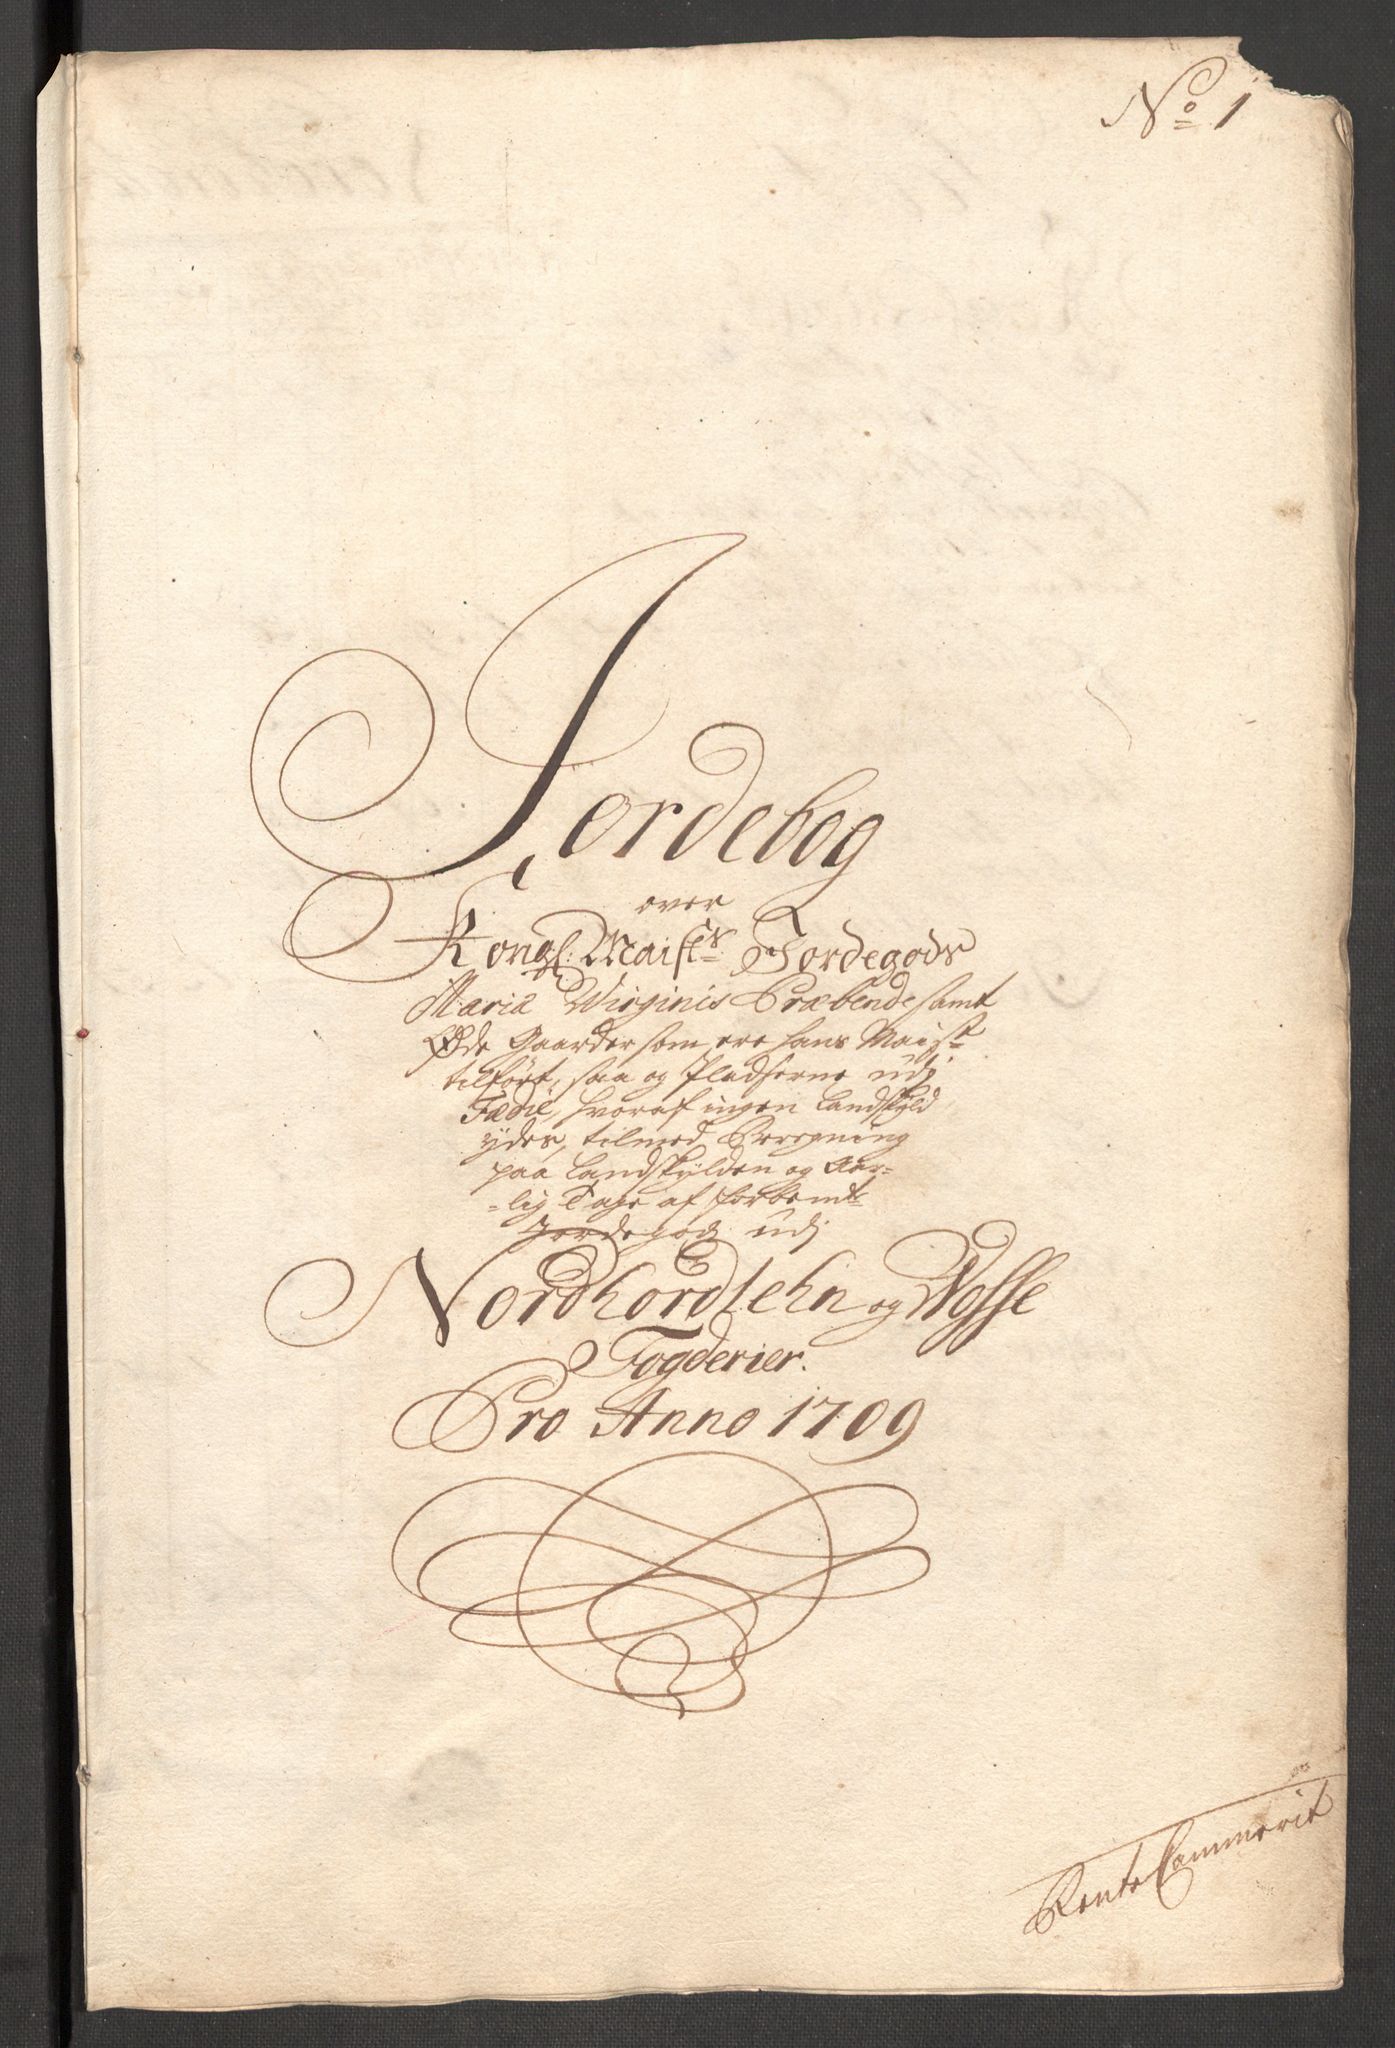 No 1
Jordebog
over
Kongl: Maists Jordegods
Maria Wirginis Præbende samt
Øde Gaarder som ere hans Maist
tilført, saa og Pladserne udj
Fædie, hvoraf ingen Landskyld
ydes, tilmed Beregning
paa Landskylden og Aar-
-lig Tage af forbemte
Jordegods udj
Nordhordlehn og Wosse
Fogderier.
Pro Anno 1709
Rente Cammerit